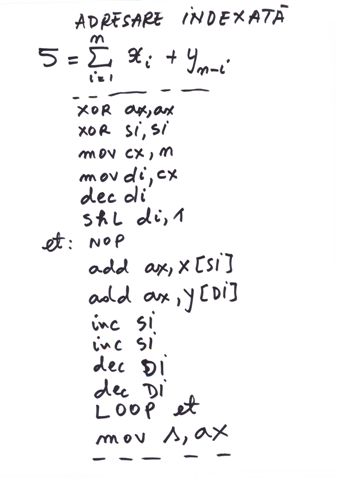 ADRESARE INDEXATĂ
S = n Σ i=1 xi + yn-i
XOR ax,ax
XOR si,si
mov cx,n
mov di,cx
dec di
shL di,1
et: NOP
add ax,x[Si]
add ax,y[Di]
inc Si
inc Si
dec Di
dec Di
LOOP et
mov s,ax